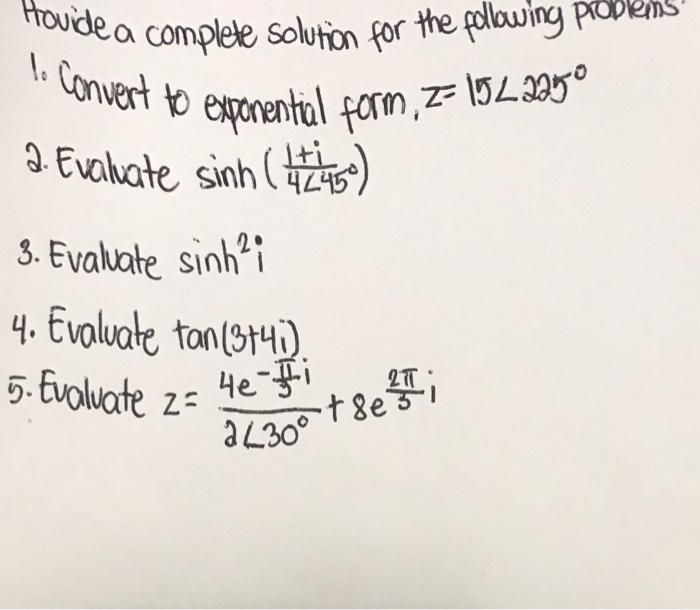 Provide a complete solution for the following problems.
1. Convert to exponential form, z= 15∠225°
2. Evaluate sinh (1+i/4∠45°)
3. Evaluate sinh²i
4. Evaluate tan(3+4i)
5. Evaluate z= 4e^(-π/3 i)/2∠30° + 8e^(2π/3 i)